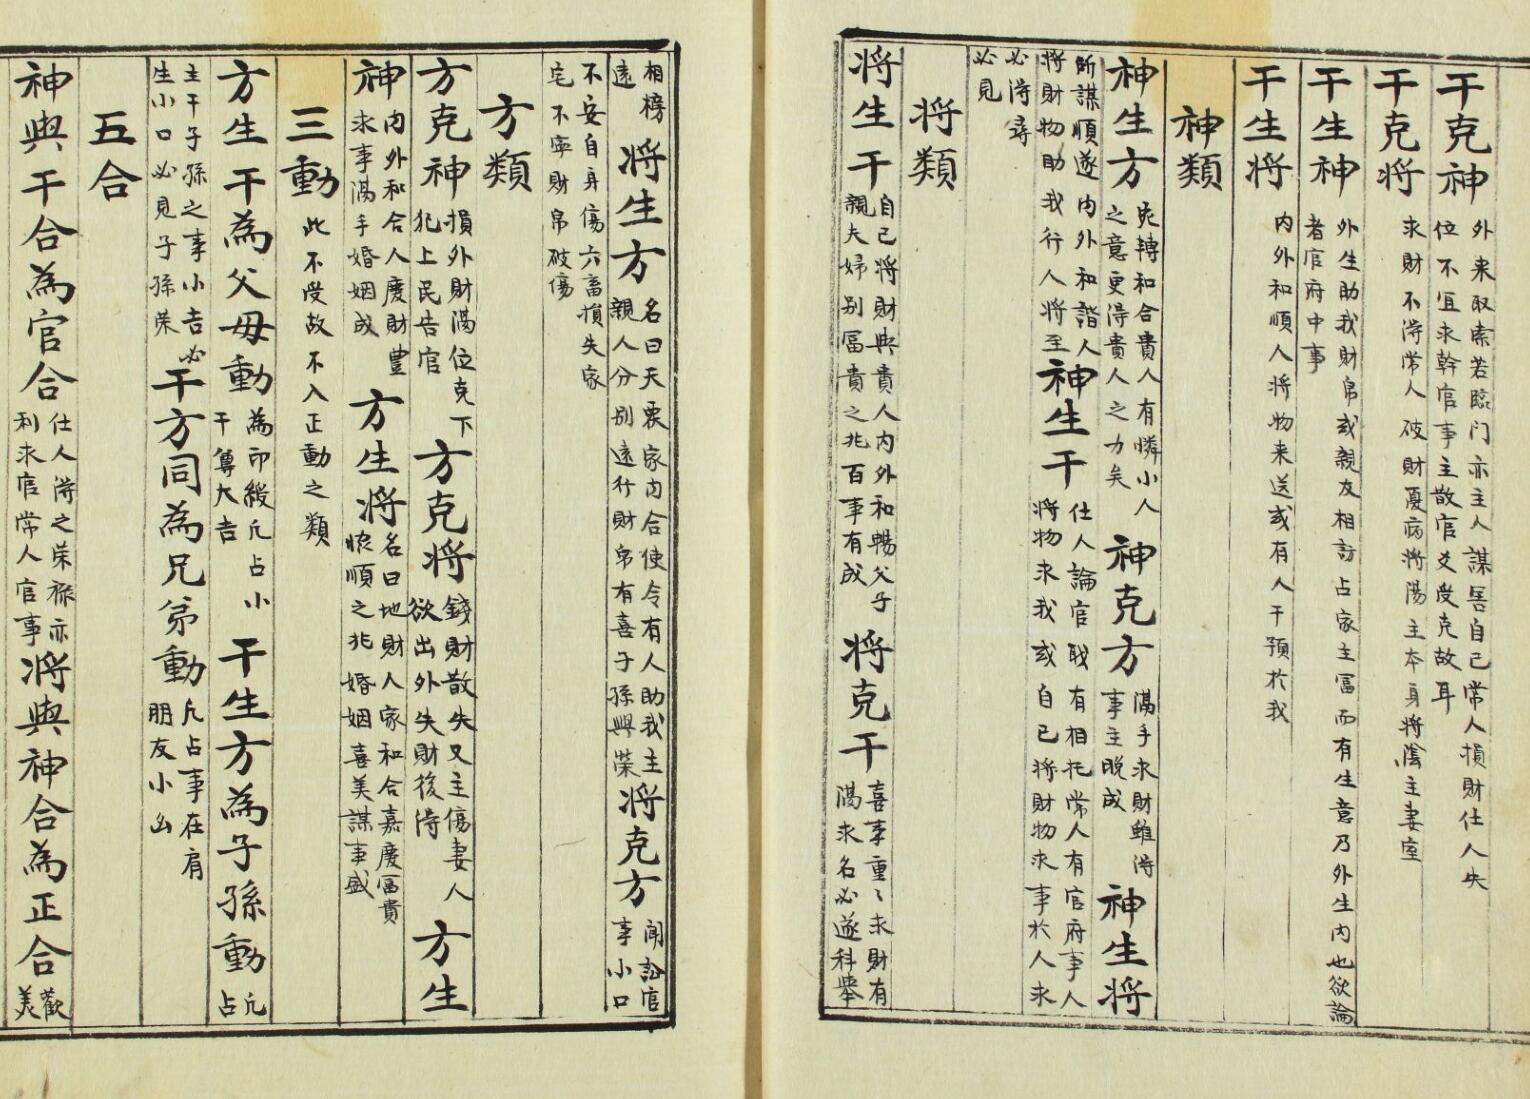 干克神 外来取索若臨门亦主人謀害自己常人損財仕人失位不宜求幹官事主散官爻受克故耳
干克將 求財不淂常人破財憂病將陽主本身將陰主妻室
干生神 外生助我財帛或親友相訪占家主冨而有生意乃外生内也欲論者官府中事
干生將 内外和順人將物来送或有人干預於我
神類
神生方 宛轉和合貴人有憐小人之意更得貴人之力矣 神克方 隔手求財雖淂事主晚成 神生將
所謀順遂内外和諧人將財物助我行人將至 神生干 仕人論官職有相托常人有官府事人將物来我或自己將財物求事於人求
必淂尋必見
將類
將生干 自己將財與貴人内外和暢父子親夫婦别冨貴之兆百事有成 將克干 喜事重〻求財有隔求名必遂科舉
相榜遠 將生方 名曰天 家内合使令有人助我主親人分别遠行財帛有喜子孫興榮 將克方 闹訟官事小口
不安自身傷六畜損失家宅不寧財帛破傷
方類
方克神 損外財隔位克下犯上民告官 方克將 錢財散失又主傷妻人欲出外失財後淂 方生
神 内外和合人慶財豐求事隔手婚姻成 方生將 名曰地財人家和合嘉慶冨貴 順之兆婚姻喜美謀事盛
三動 此不受故不入正動之類
方生干為父母動 為印綬凢占小干尊大吉 干生方為子孫動 凢占
主干子孫之事小吉必生小口必見子孫荣 干方同為兄弟動 凢占事在肩朋友小凶
五合
神與干合為官合 仕人淂之荣祿亦利求官常人官事 將與神合為正合 歡美